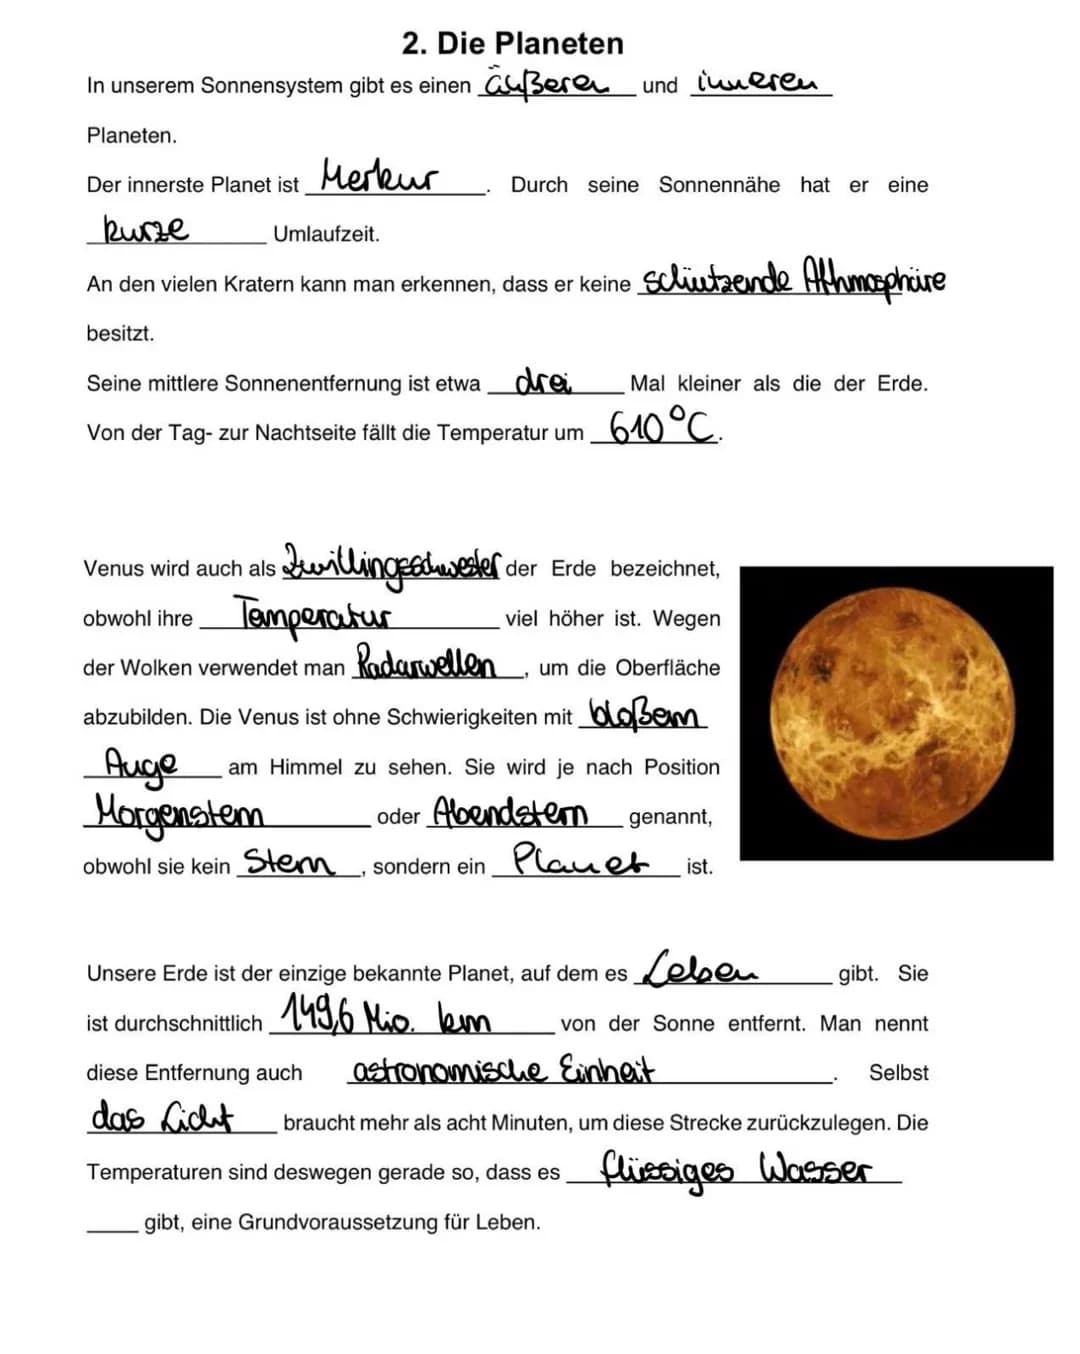 2. Die Planeten
In unserem Sonnensystem gibt es einen äußeren und inneren
Planeten.
Der innerste Planet ist Merkur. Durch seine Sonnennähe hat er eine
kurze Umlaufzeit.
An den vielen Kratern kann man erkennen, dass er keine schützende Athmosphäre
besitzt.
Seine mittlere Sonnenentfernung ist etwa drei Mal kleiner als die der Erde.
Von der Tag- zur Nachtseite fällt die Temperatur um 610°C.
Venus wird auch als Zwillingsschwester der Erde bezeichnet,
obwohl ihre Temperatur viel höher ist. Wegen
der Wolken verwendet man Radarwellen, um die Oberfläche
abzubilden. Die Venus ist ohne Schwierigkeiten mit bloßem
Auge am Himmel zu sehen. Sie wird je nach Position
Morgenstern oder Abendstern genannt,
obwohl sie kein Stern, sondern ein Planet ist.
Unsere Erde ist der einzige bekannte Planet, auf dem es Leben gibt. Sie
ist durchschnittlich 149,6 Mio. km von der Sonne entfernt. Man nennt
diese Entfernung auch astronomische Einheit. Selbst
das Licht braucht mehr als acht Minuten, um diese Strecke zurückzulegen. Die
Temperaturen sind deswegen gerade so, dass es flüssiges Wasser
gibt, eine Grundvoraussetzung für Leben.